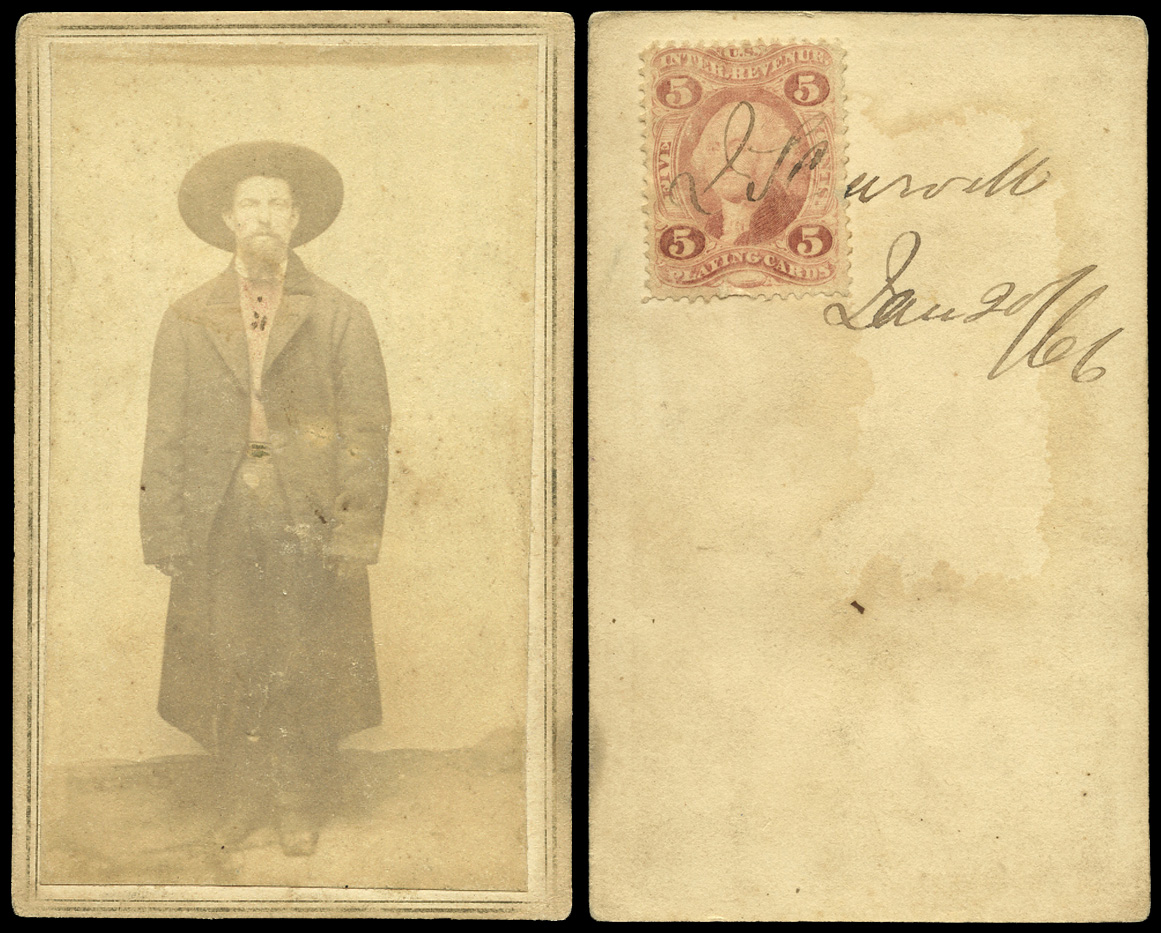 U.S.
INTER. REVENUE.
5 5
FIVE CENTS.
5 5
PLAYING CARDS
Jan 20/66